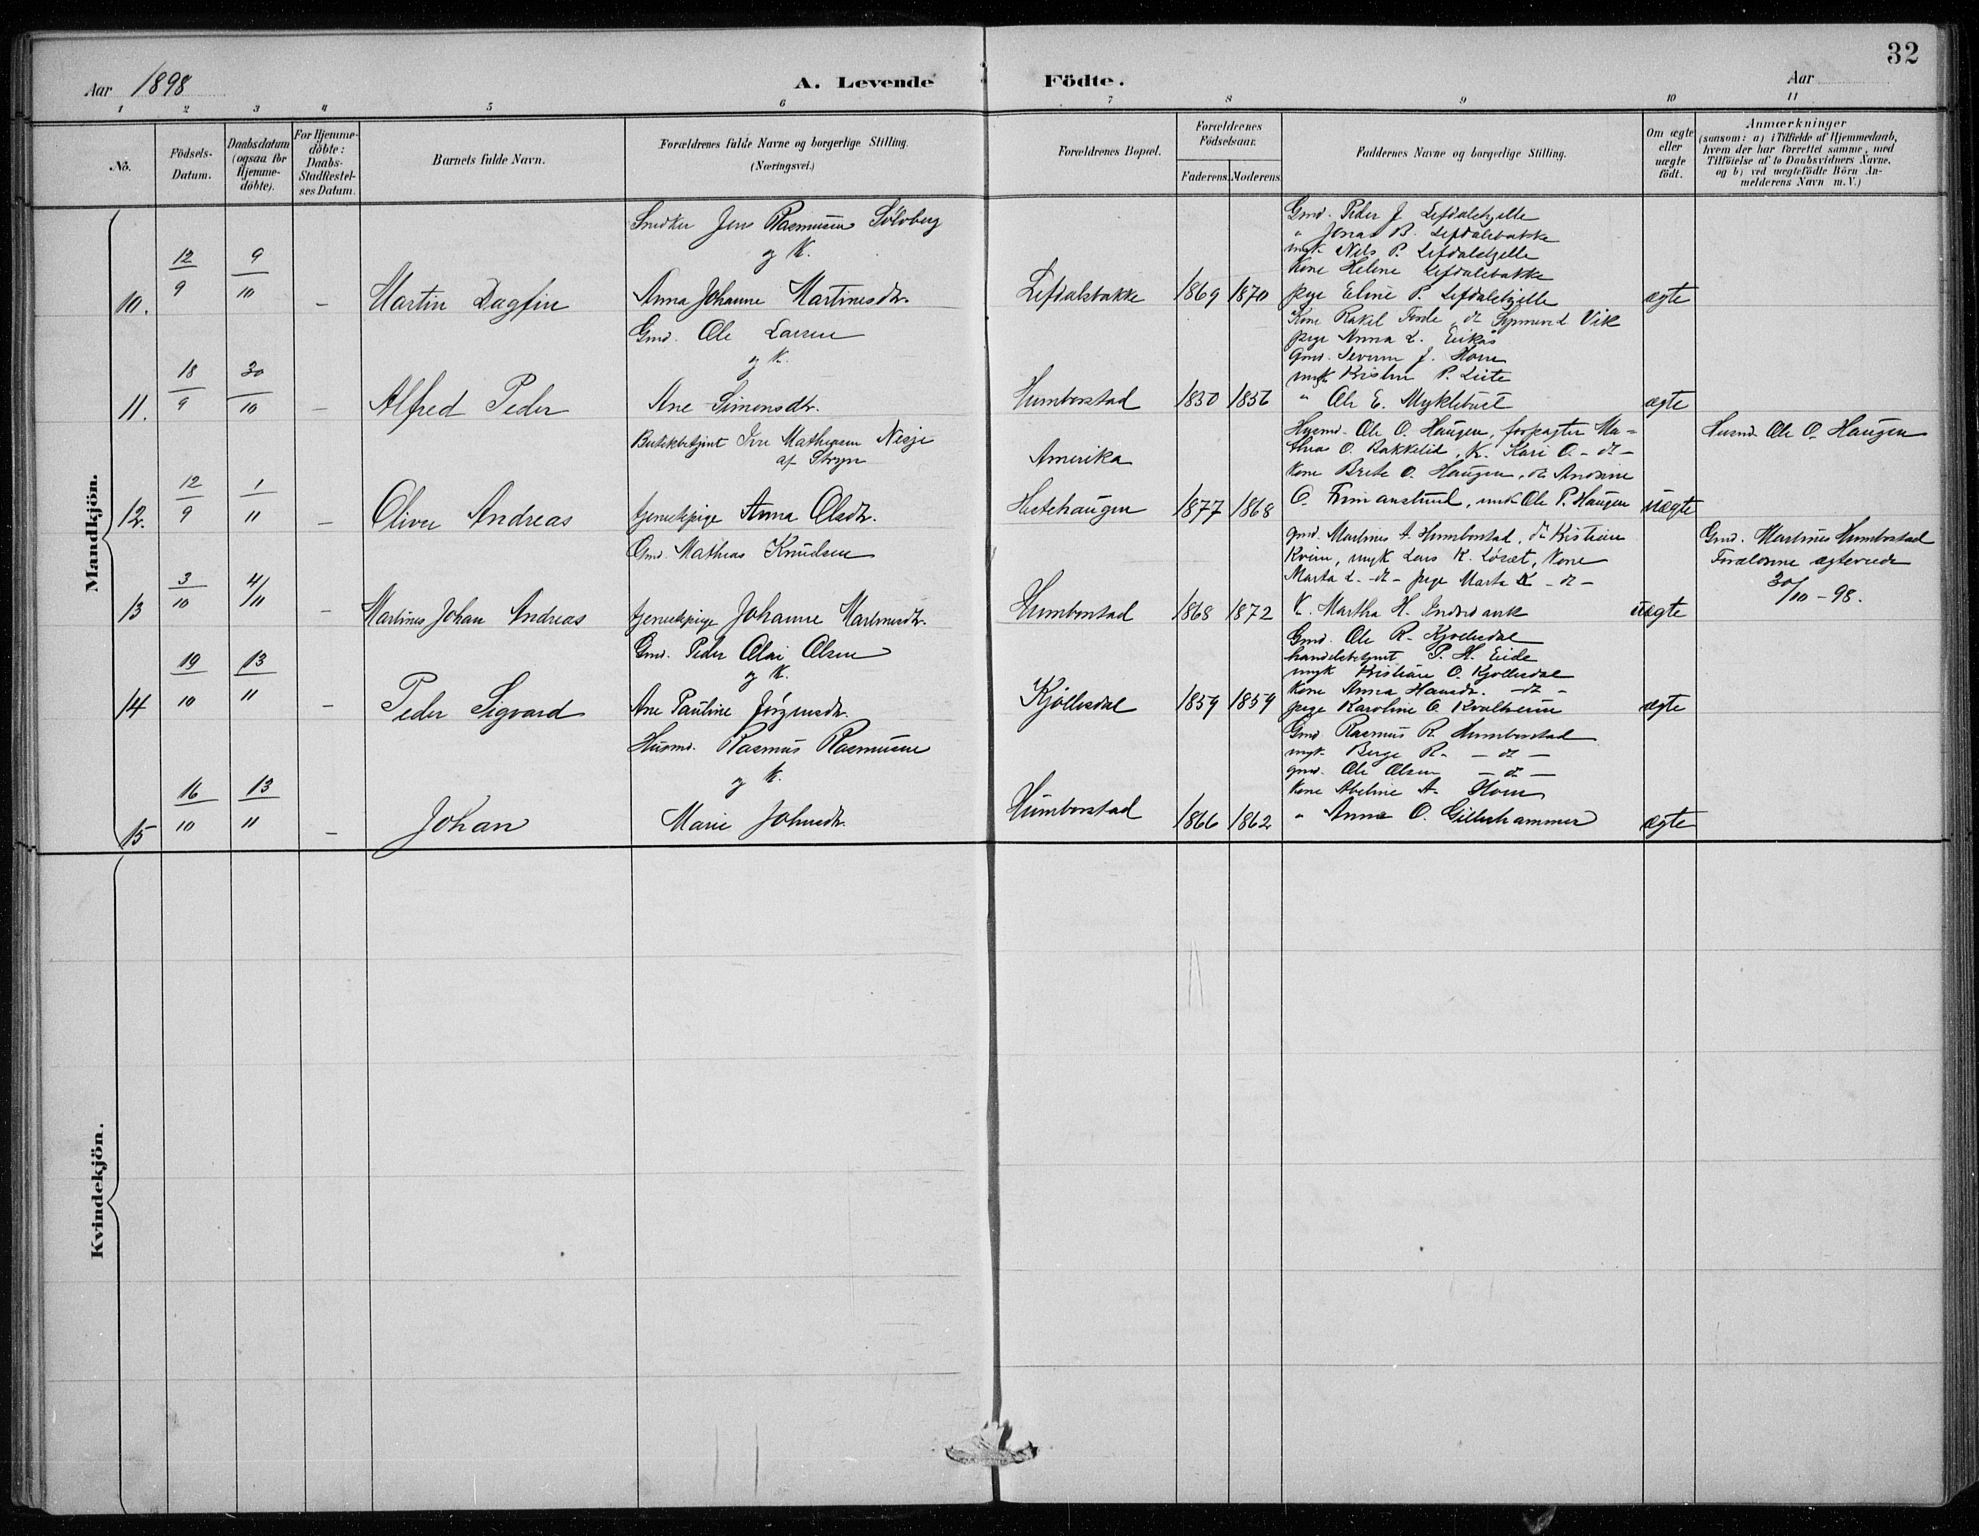 32
Aar 1898
A. Levende Födte.
Aar
1 2 3 4 5 6 7 8 9 10 11
No.
Födsels-Datum.
Daabsdatum (ogsaa for Hjemme-döbte).
For Hjemme-döbte: Daabs-Stadfæstel-ses Datum.
Barnets fulde Navn.
Forældrenes fulde Navne og borgerlige Stilling. (Næringsvei.)
Forældrenes Bopæl.
Forældrenes Födselsaar.
Faderens. Moderens.
Faddernes Navne og borgerlige Stilling.
Om ægte eller uægte födt.
Anmærkninger
(saasom: a) i Tilfælde af Hjemmedaab, hvem der har forrettet samme, med Tilföielse af to Daabsvidners Navne, og b) ved uægtefödte Börn An-melderens Navn m. V.)
Mandkjön.
10. 12/9 9/10 – Martin Dagfin
Snedker Jens Rasmussen Sölvberg
og K.
Anna Johanne Martinusdtr.
Lefdalsbakke 1869 1870
Gmd. Peder J. Lefdalshjelle
" Jonas B. Lefdalsbakke
ungk. Nils P. Lefdalshjelle
Kone Helene Lefdalsbakke
pige Eline P. Lefdalshjelle
ægte
11. 18/9 30/10 – Alfred Peder
Gmd. Ole Larsen
og K.
Ane Simonsdtr.
Humborstad 1850 1856
Kone Rakel Vik
pige Anna L. Eikås
Gmd. Severin J. Hove
ungk. P. Leite
" Ole E. Myklebust
ægte
12. 12/9 1/11 – Oliver Andreas
Iver Mathiesen Nesje
af Stryn
tjenestpige Anna Olsdtr.
Amerika
1877 1868
Husmd. Ole O. Haugen, forpagter Ma-
thias O. Bakkelid, K. Kari O. – d –
Kone Brite O. Haugen, do
O. ungk. Ole P. Haugen
uægte
Husmd. Ole O. Haugen
13 3/10 4/11 – Martines Johan Andreas
Gmd. Mathias Knudsen
tjenestpige Johanne Martinusdtr.
Humborstad 1868 1872
Gmd. Martines A. Humborstad, do Kristian
ungk. Lars K. Löset, Kone
Marta L – d – pige Marta K – d –
K. Martha H.
uægte
Gmd. Martines Humborstad
Forældrene ægteviede
30/10 – 98.
14 19/10 13/11 – Peder Sigvard
Gmd. Peder Olai Olsen
og K.
Ane Pauline Jörgensdtr.
Kjöllesdal 1859 1859
Gmd. Ole R. Kjöllesdal
handelsbetjent P. H. Eide
ungk. Kristian O. Kjöllesdal
Kone Anna Hansdtr. – d –
pige Karoline O. Kvalheim
ægte
15 16/10 13/11 – Johan
Husmd. Rasmus Rasmussen
og K.
Marie Johnsdtr.
Humborstad 1866 1862
Gmd. Rasmus R. Humborstad
ungk. Berge R. – d –
gmd. Ole Olsen – d –
Kone Abeline A. Hove
" Anna O. Gilleshammer
ægte
Kvindekjön.